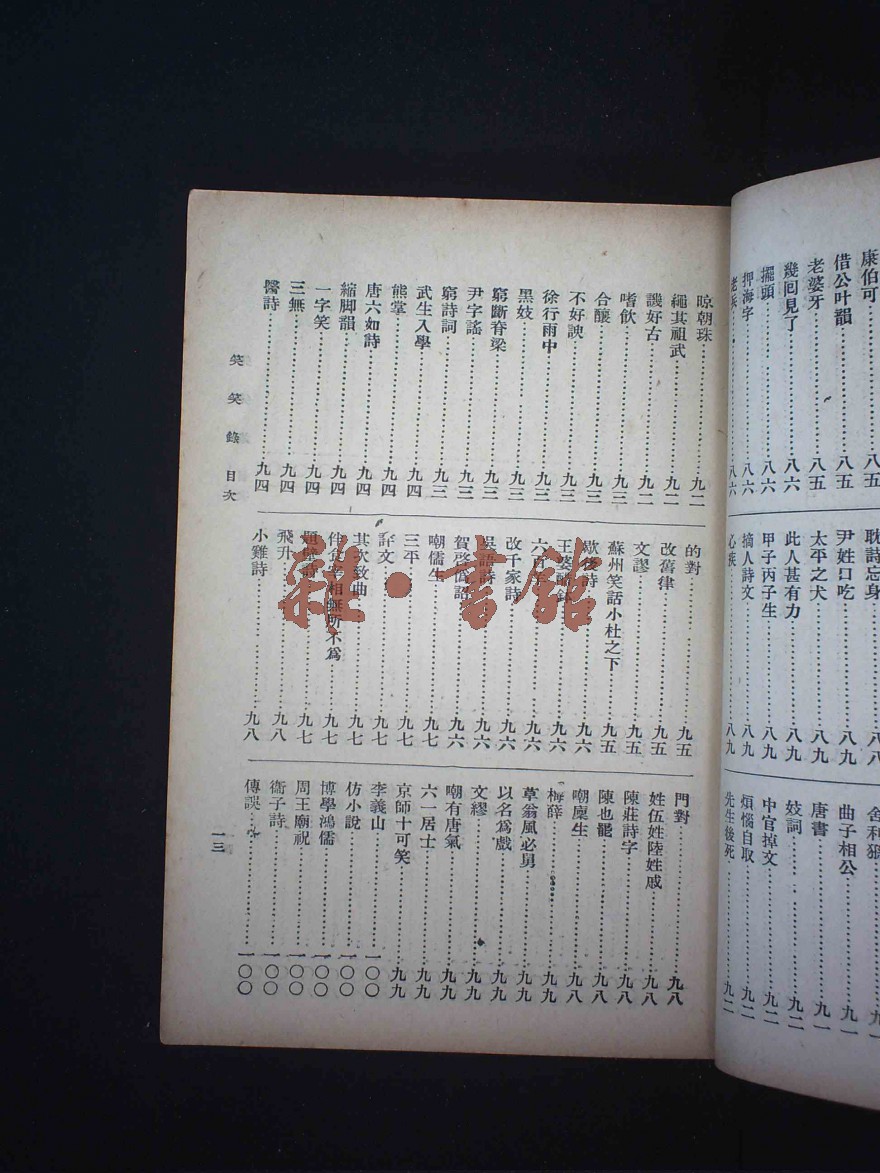 康伯可……八五
借公叶韻……八五
老婆牙……八五
幾回見了……八六
擺頭……八六
押海字……八六
八六
耽詩忘身
尹姓口吃……八九
太平之犬……八九
此人甚有力……八九
甲子丙子生……八九
摘人詩文……八九
心疾……八九
舍利猴
曲子相公……九一
唐書……九一
妓詞……九二
中官掉文……九二
煩惱自取……九二
先生後死……九二
晾朝珠……九二
繩其祖武……九二
譏好古……九二
嗜飲……九三
合釀……九三
不好諛……九三
徐行雨中……九三
黑妓……九三
窮斷脊梁……九三
尹字謠……九三
窮詩詞……九三
武生入學……九四
熊掌……九四
唐六如詩……九四
縮脚韻……九四
一字笑……九四
三無……九四
醫詩……九四
的對……九五
改舊律……九五
文謬……九五
蘇州笑話小杜之下……九五
歇後詩……九六
王婆釀……九六
六百羊……九六
改千家詩……九六
吳語詩……九六
賀啓……九六
嘲儒生……九七
三平……九七
文……九七
其次致曲……九七
伴食宰相無所不爲……九七
題……九七
飛升……九八
小雞詩……九八
門對……九八
姓伍姓陸姓戚……九八
陳莊詩字……九八
陳也罷……九八
嘲廩生……九八
梅薛……九九
草翁風必舅……九九
以名爲戲……九九
文繆……九九
嘲有唐氣……九九
六一居士……九九
京師十可笑……九九
李義山……一〇〇
仿小說……一〇〇
博學鴻儒……一〇〇
周王廟祝……一〇〇
衞子詩……一〇〇
傳誤……一〇〇
笑笑錄 目次
一三
雜·書館